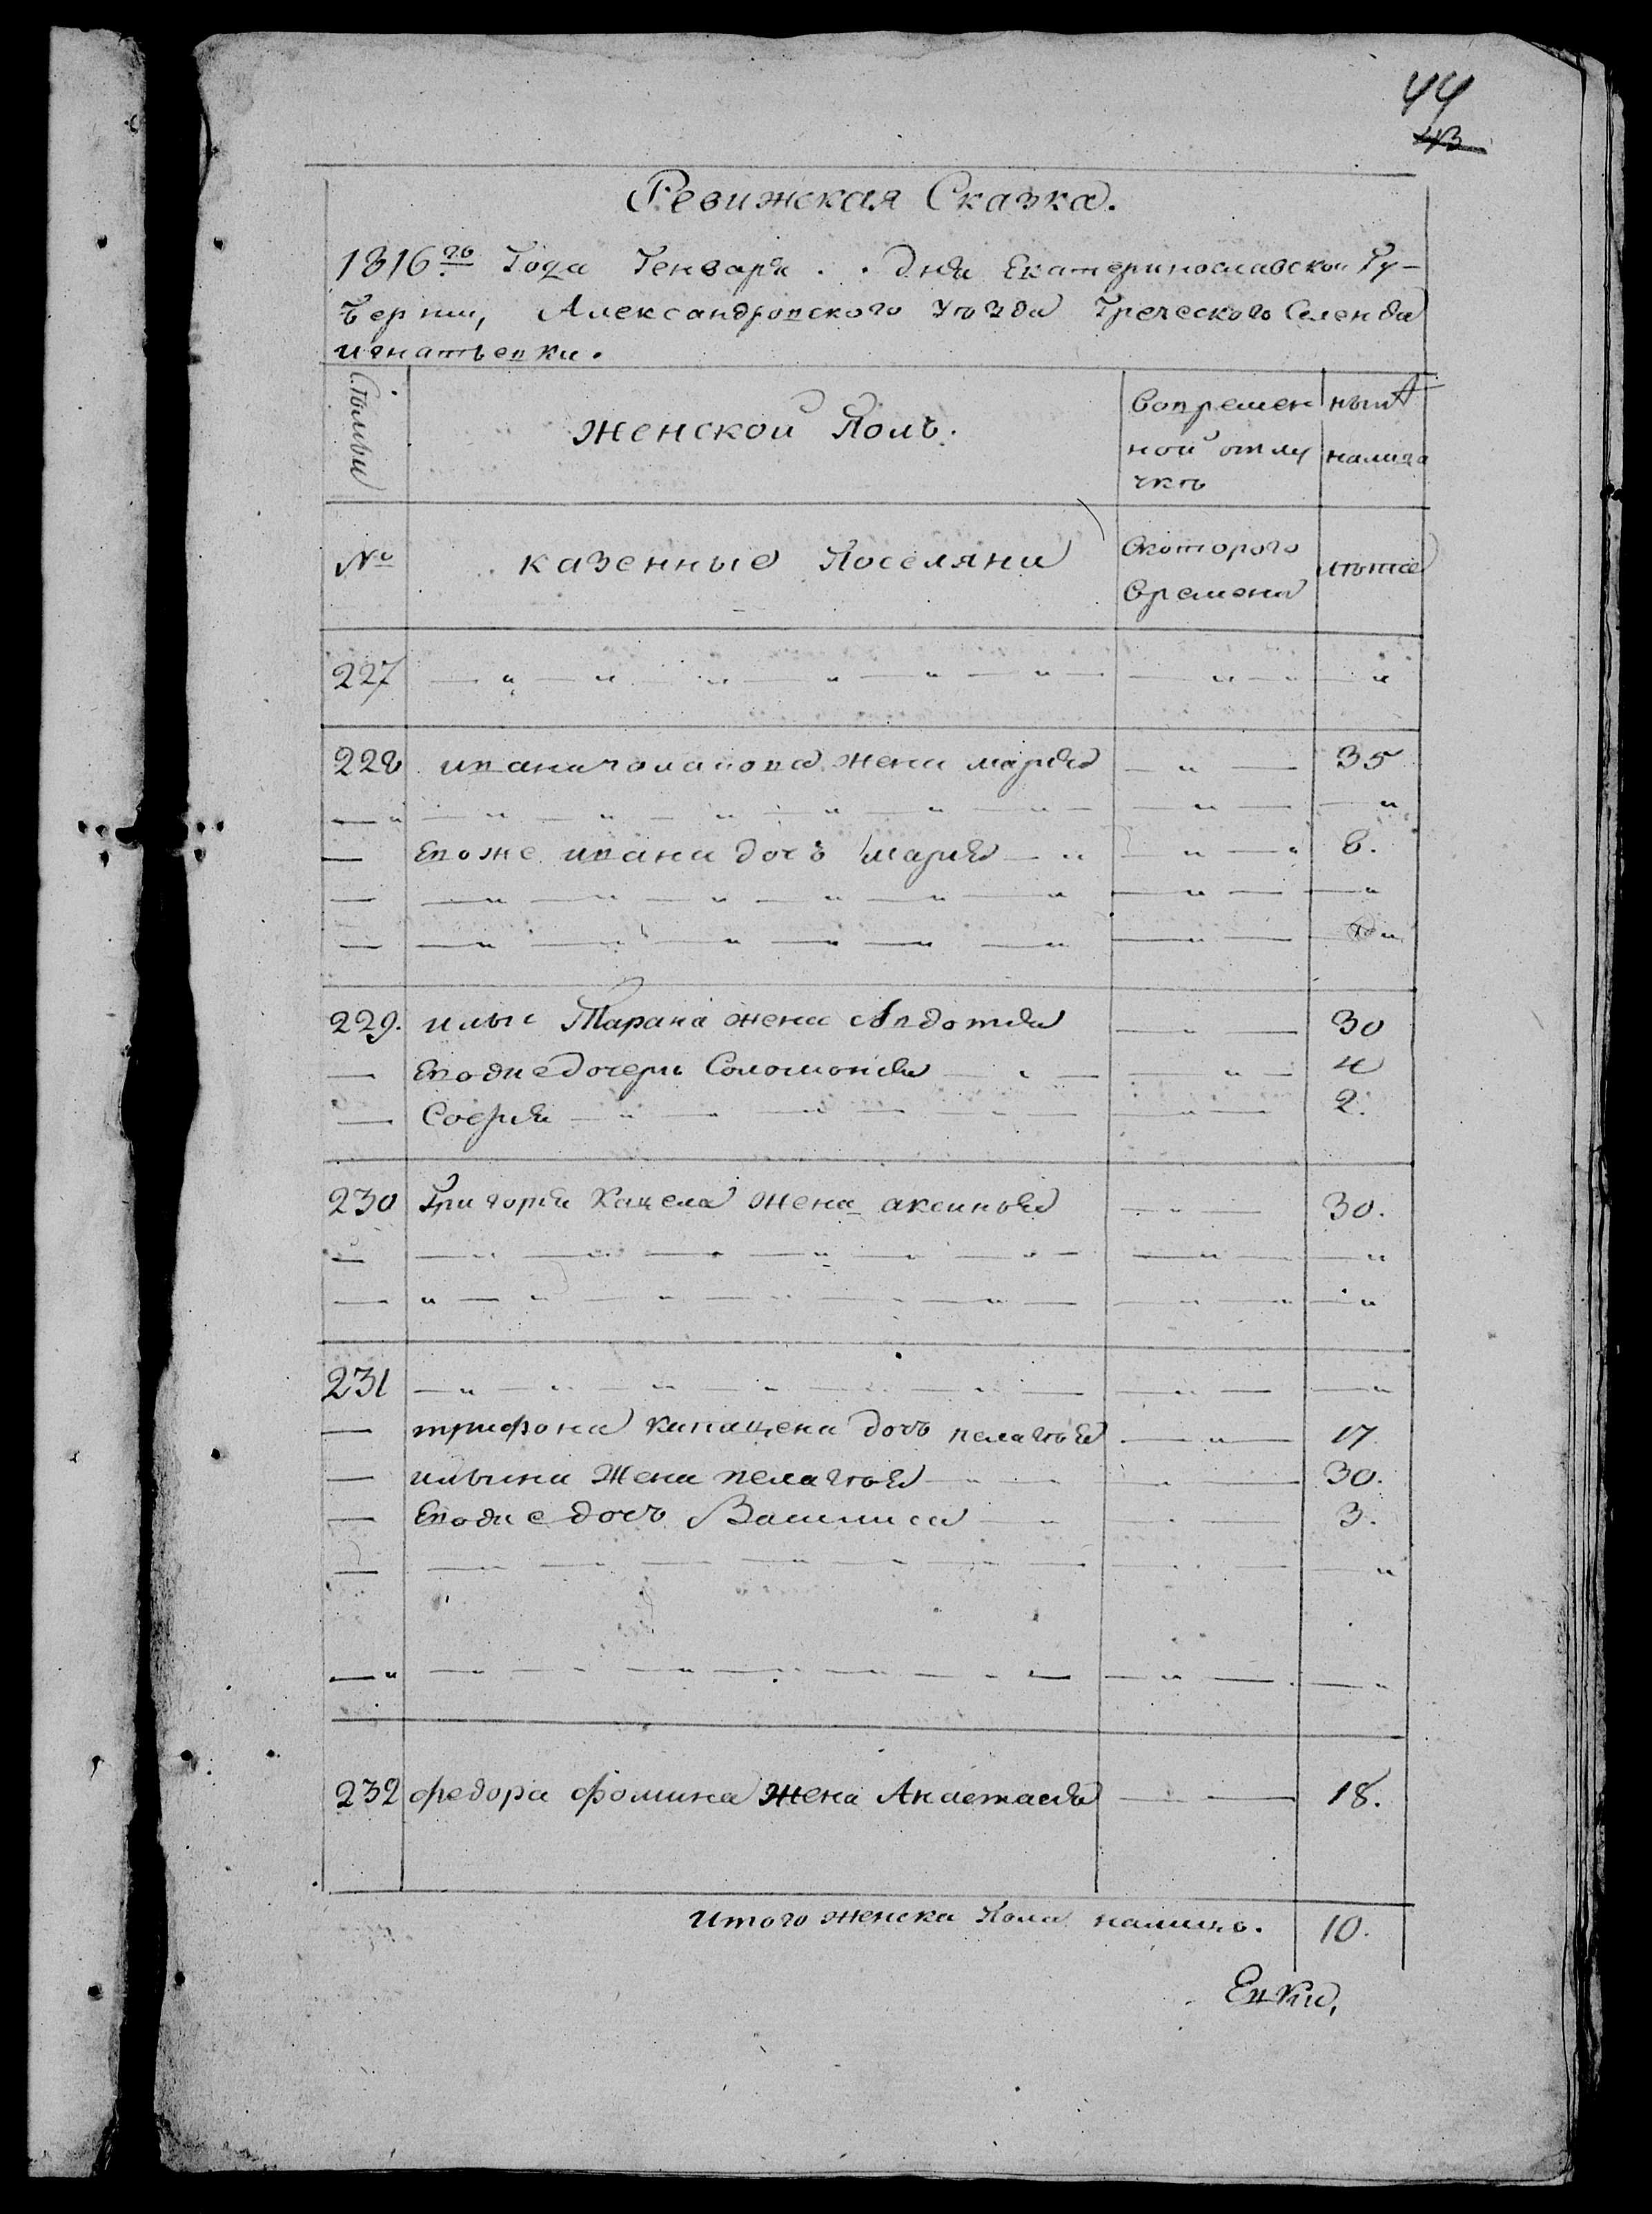 44
43
Ревижская Сказка.
1816го Года Генваря . . дня Екатеринославской Гу-
берnии, Александровского уезда Греческого Селения
игнатьевки.
Семьи
женской Полъ.
вовремен
ной отлу
чкъ
ныпъ
налица
№
казенные Поселяни
Скоторого
времени
лѣта
227
228 ивана чолакова жена марья 35
Евоже ивана дочь марья 8.
229. ильи Тарана жена Авдотья 30
Евоже дочери Соломония 4
Софья 2.
230 Григорья Кацела жена аксинья 30.
231
трифона дочь пелагѣя 17
ильина жена пелагѣя 30.
Евоже дочь Василиса 3.
232 федора фомина жена Анастасья 18.
итого женска пола налицо. 10.
Евки,